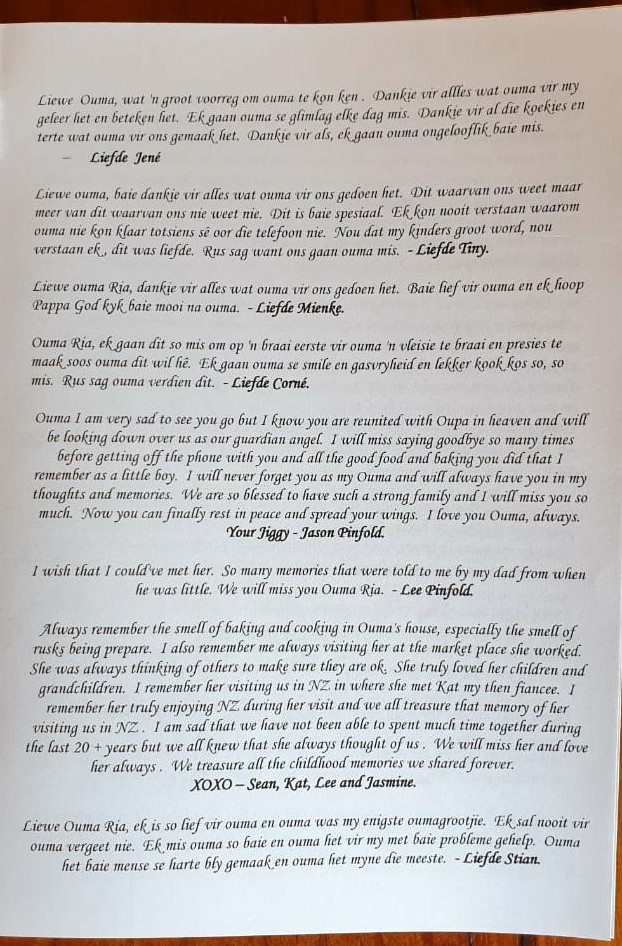 Liewe Ouma, wat 'n groot voorreg om ouma te kon ken . Dankie vir allles wat ouma vir my
geleer het en beteken het. Ek gaan ouma se glimlag elke dag mis. Dankie vir al die koekies en
terte wat ouma vir ons gemaak het. Dankie vir als, ek gaan ouma ongelooflik baie mis.
– Liefde Jené
Liewe ouma, baie dankie vir alles wat ouma vir ons gedoen het. Dit waarvan ons weet maar
meer van dit waarvan ons nie weet nie. Dit is baie spesiaal. Ek kon nooit verstaan waarom
ouma nie kon klaar totsiens sê oor die telefoon nie. Nou dat my kinders groot word, nou
verstaan ek , dit was liefde. Rus sag want ons gaan ouma mis. - Liefde Tiny.
Liewe ouma Ria, dankie vir alles wat ouma vir ons gedoen het. Baie lief vir ouma en ek hoop
Pappa God kyk baie mooi na ouma. - Liefde Mienke.
Ouma Ria, ek gaan dit so mis om op 'n braai eerste vir ouma 'n vleisie te braai en presies te
maak soos ouma dit wil hê. Ek gaan ouma se smile en gasvryheid en lekker kook kos so, so
mis. Rus sag ouma verdien dit. - Liefde Corné.
Ouma I am very sad to see you go but I know you are reunited with Oupa in heaven and will
be looking down over us as our guardian angel. I will miss saying goodbye so many times
before getting off the phone with you and all the good food and baking you did that I
remember as a little boy. I will never forget you as my Ouma and will always have you in my
thoughts and memories. We are so blessed to have such a strong family and I will miss you so
much. Now you can finally rest in peace and spread your wings. I love you Ouma, always.
Your Jiggy - Jason Pinfold.
I wish that I could've met her. So many memories that were told to me by my dad from when
he was little. We will miss you Ouma Ria. - Lee Pinfold.
Always remember the smell of baking and cooking in Ouma's house, especially the smell of
rusks being prepare. I also remember me always visiting her at the market place she worked.
She was always thinking of others to make sure they are ok. She truly loved her children and
grandchildren. I remember her visiting us in NZ in where she met Kat my then fiancee. I
remember her truly enjoying NZ during her visit and we all treasure that memory of her
visiting us in NZ . I am sad that we have not been able to spent much time together during
the last 20 + years but we all knew that she always thought of us . We will miss her and love
her always . We treasure all the childhood memories we shared forever.
XOXO – Sean, Kat, Lee and Jasmine.
Liewe Ouma Ria, ek is so lief vir ouma en ouma was my enigste oumagrootjie. Ek sal nooit vir
ouma vergeet nie. Ek mis ouma so baie en ouma het vir my met baie probleme gehelp. Ouma
het baie mense se harte bly gemaak en ouma het myne die meeste. - Liefde Stian.